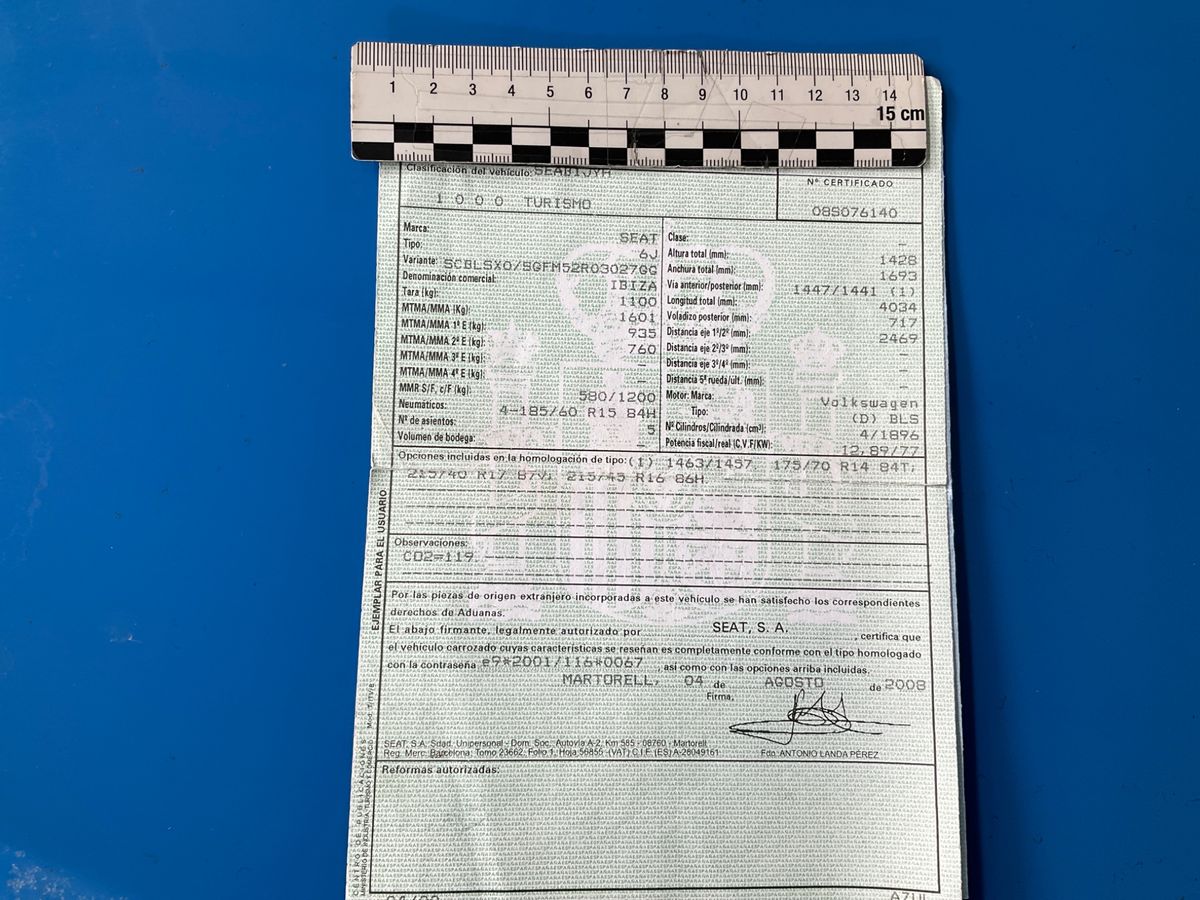 1 2 3 4 5 6 7 8 9 10 11 12 13 14
15 cm
Clasificación del vehículo: SEAB1JYH
1000 TURISMO
Nº CERTIFICADO
08S076140
Marca: SEAT
Tipo: 6J
Variante: SCBLSX0/SGFM52R03027GG
Denominación comercial: IBIZA
Tara (kg): 1100
MTMA/MMA (Kg): 1601
MTMA/MMA 1º E (kg): 935
MTMA/MMA 2º E (kg): 760
MTMA/MMA 3º E (kg): –
MTMA/MMA 4º E (kg): –
MMR S/F, c/F (kg): 580/1200
Neumáticos: 4-185/60 R15 84H
Nº de asientos: 5
Volumen de bodega: –
Clase: –
Altura total (mm): 1428
Anchura total (mm): 1693
Vía anterior/posterior (mm): 1447/1441 (1)
Longitud total (mm): 4034
Voladizo posterior (mm): 717
Distancia eje 1º/2º (mm): 2469
Distancia eje 2º/3º (mm): –
Distancia eje 3º/4º (mm): –
Distancia 5ª rueda/últ. (mm): –
Motor: Marca: Volkswagen
Tipo: (D) BLS
Nº Cilindros/Cilindrada (cm³): 4/1896
Potencia fiscal/real (C.V.F/KW): 12,89/77
Opciones incluidas en la homologación de tipo: (1) 1463/1457, 175/70 R14 84T,
215/40 R17 87V, 215/45 R16 86H
Observaciones:
CO2=119
Por las piezas de origen extranjero incorporadas a este vehículo se han satisfecho los correspondientes
derechos de Aduanas.
El abajo firmante, legalmente autorizado por SEAT, S. A. , certifica que
el vehículo carrozado cuyas características se reseñan es completamente conforme con el tipo homologado
con la contraseña e9*2001/116*0067 , así como con las opciones arriba incluidas.
MARTORELL, 04 de AGOSTO de 2008
Firma,
SEAT, S.A. Sdad. Unipersonal - Dom. Soc. Autovía A-2, Km 585 - 08760 - Martorell
Reg. Merc. Barcelona: Tomo 23662, Folio 1, Hoja 56855 -(VAT) C.I.F. (ES) A-28049161
Fdo. ANTONIO LANDA PÉREZ
Reformas autorizadas:
AZUL
EJEMPLAR PARA EL USUARIO
CENTRO DE PUBLICACIONES
MINISTERIO DE INDUSTRIA, TURISMO Y COMERCIO